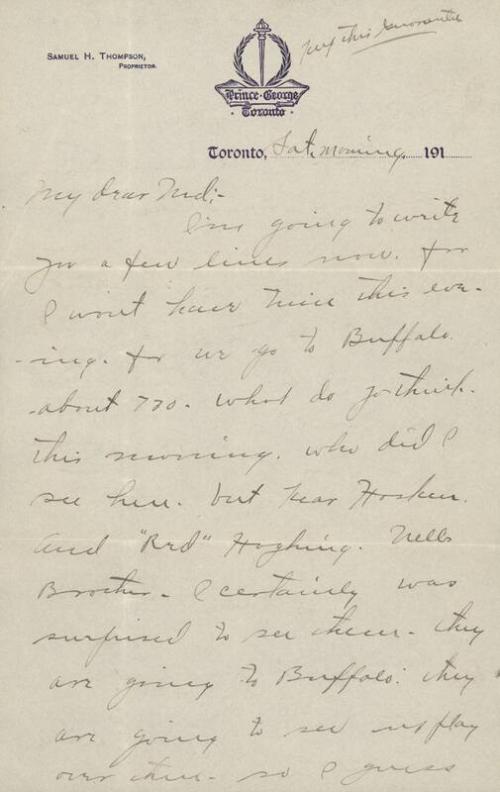 SAMUEL H. THOMPSON,
PROPRIETOR.
this
Prince George
Toronto
Toronto, Sat. morning. 191
My dear Ned:-
I'm going to write
you a few lines now. for
I wont have time this eve-
-ing. for we go to Buffalo.
-about 730. What do yo think.
this morning. who did I
see here. but
and "Red" Nells
Brother. I certainly was
surprised to see them. they
are going to Buffalo. they
are going to see us play
over there. so I guess